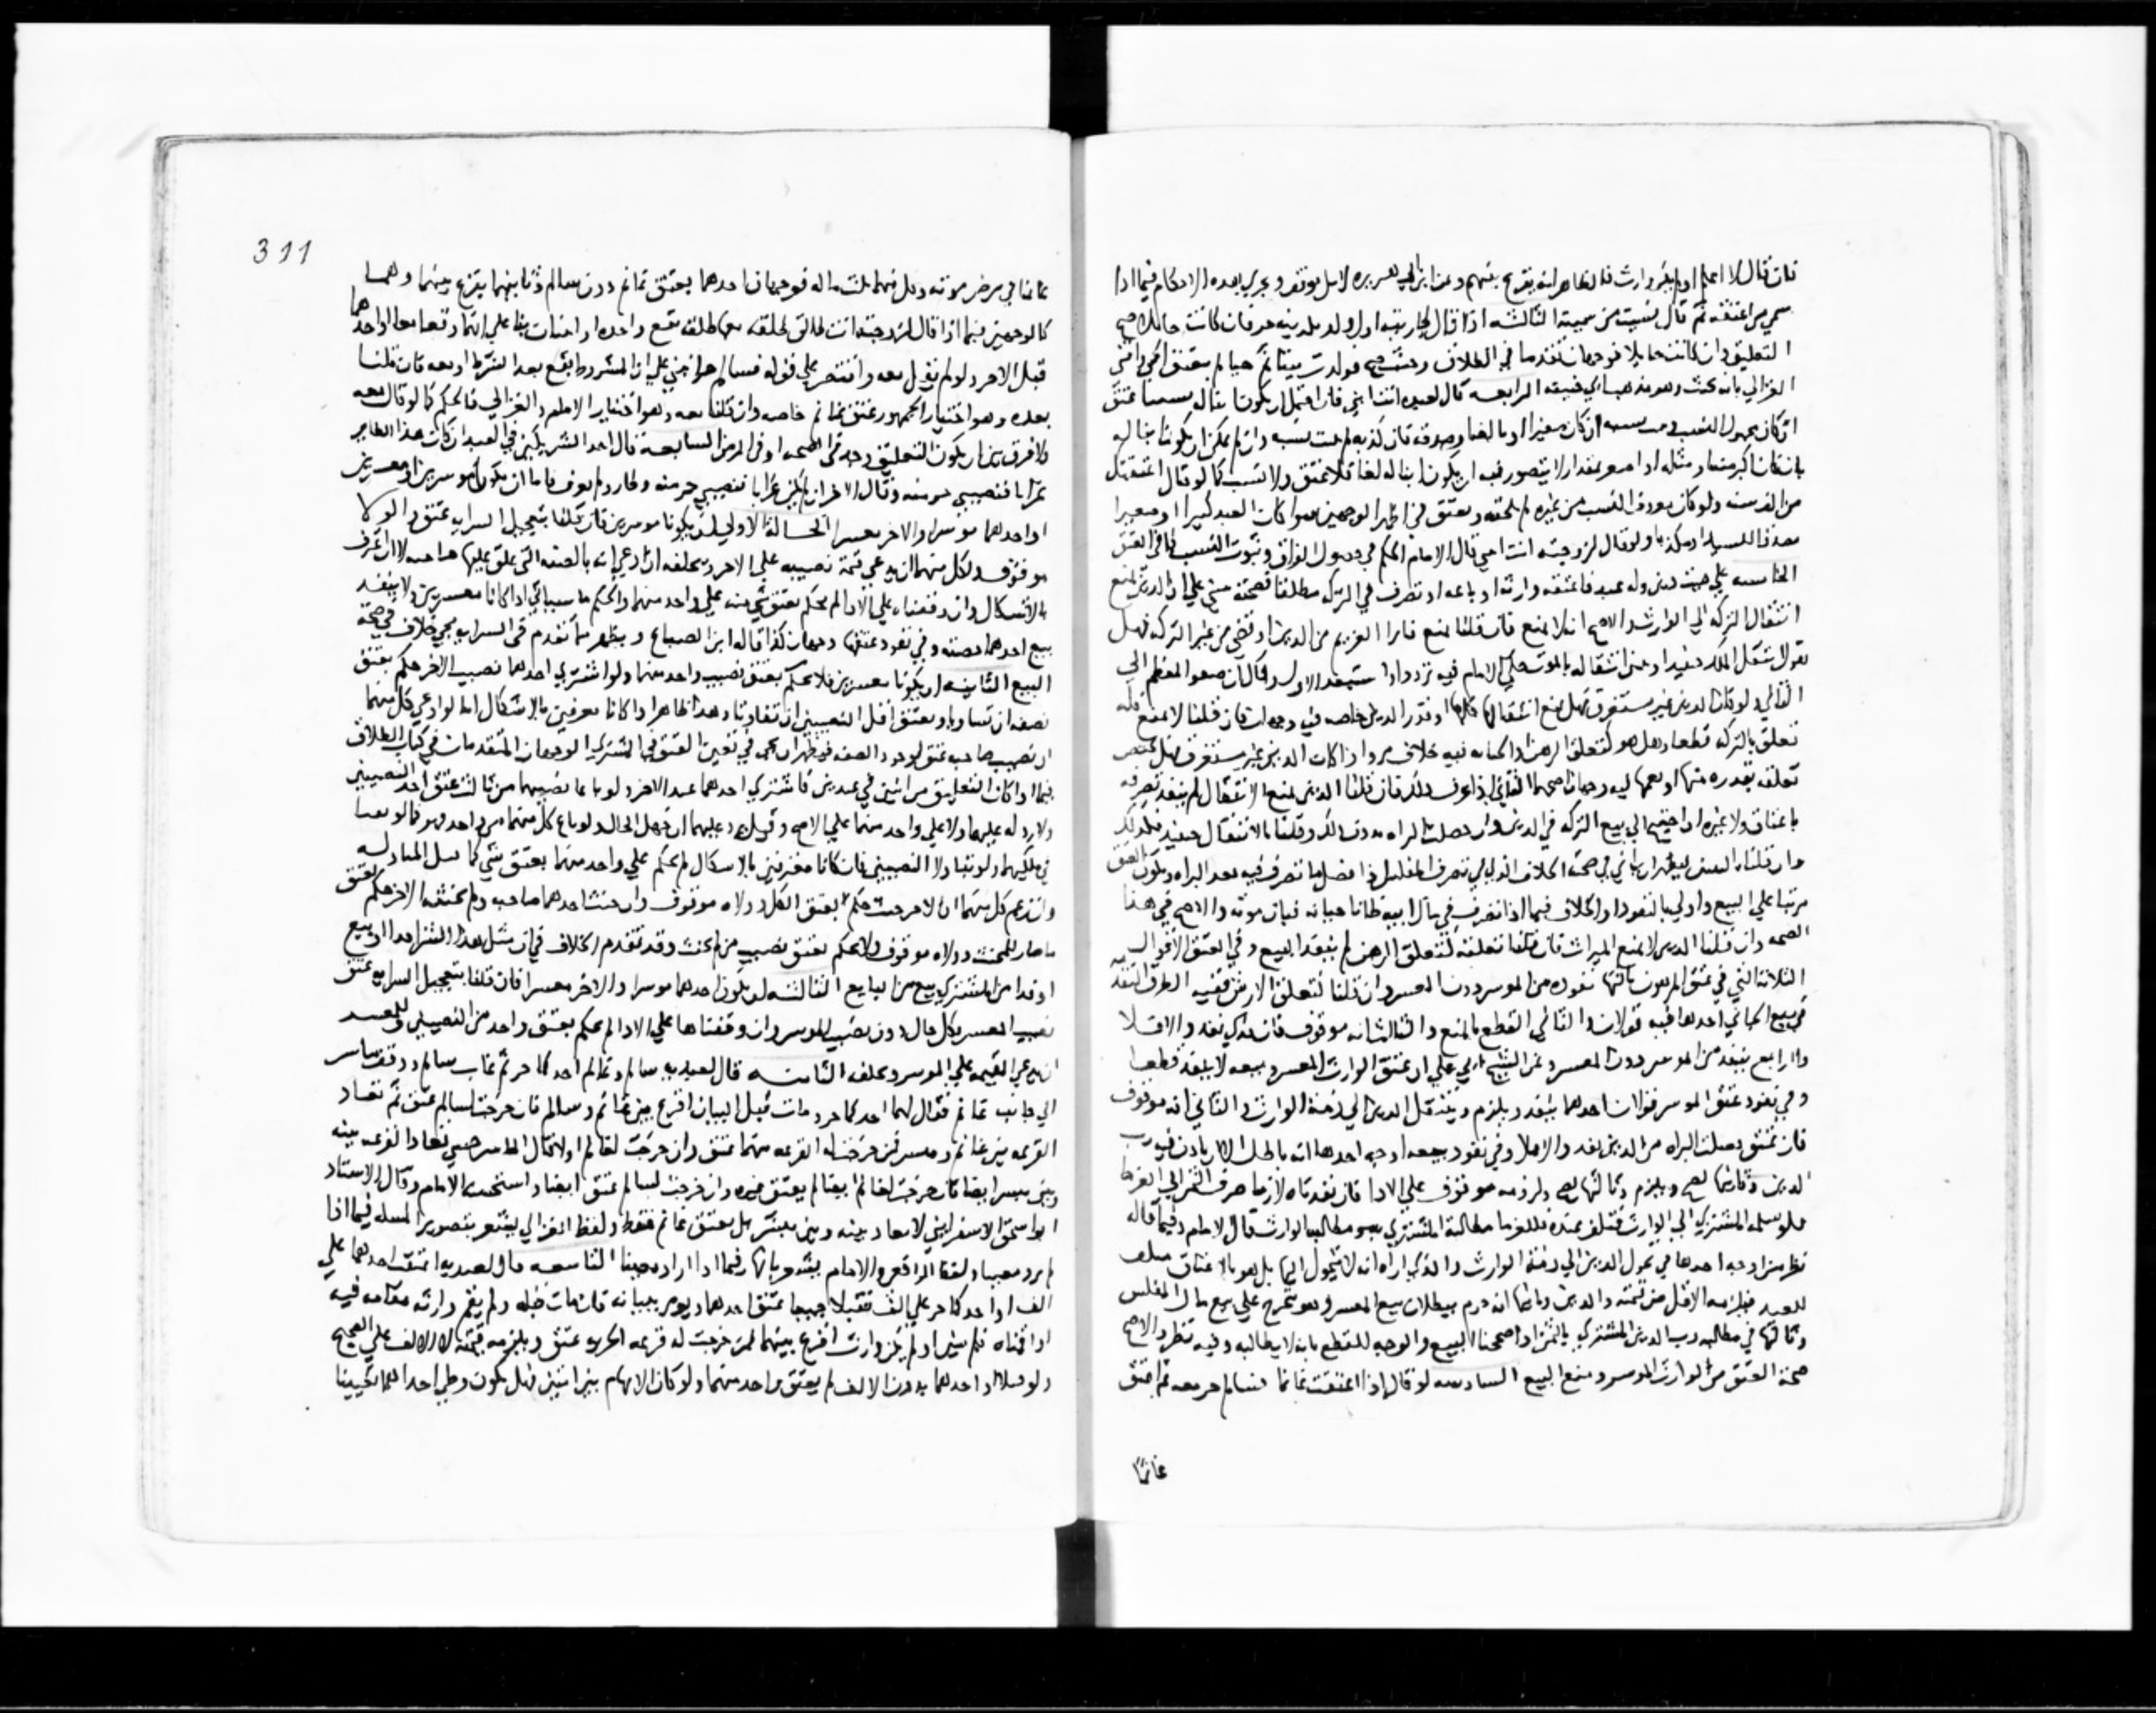 فان قال لا اعلم اولم يكن وارث فالظاهر انه يقرع بينهم وعن ابن ابي هريره لا بل يوقف ويجري هذه الاحكام فيما اذا
سمي من اعتقه ثم قال نسيت من سميته الثالثه اذا قال لجاريته اول ولد تلدينه حر فان كانت حايلا صح
التعليق وان كانت حايلا فوجهان تقدما في الطلاق وحيث صح فولدت ميتا ثم حيا لم يعتق الحي وافتى
الغزالي بانه يعتق وهو مذهب ابي حنيفه الرابعه قال لعبده انت ابني فان احتمل ان يكون ابنا له
ان كان مجهول النسب ان كان صغيرا او بالغا وصدقه فان كذبه لم يثبت نسبه وان لم يمكن ان يكون ابنا له
بان كان اكبر منه او مثله او اصغر بمقدار لا يتصور فيه ان يكون ابنا له لغا فلا عتق ولا نسب كما لو قال اعتقتك
من الف سنه ولو كان معروف النسب من غيره لم يلحقه ويعتق في اظهر الوجهين سوا كان العبد كبيرا او صغيرا
مصدقا للسيد او مكذبا ولو قال لزوجته انت ابنتي قال الامام الحكم في حصول الفراق وثبوت النسب كما في العتق
الخامسه علي ميت دين وله عبد فاعتقه وارثه او باعه او تصرف في التركه مطلقا فصحته مبني علي ان الدين يمنع
انتقال التركه الي الوارث والاصح انه لا يمنع فان قلنا يمنع فابرا الغريم من الدين او قضي من غير التركه فهل
نقول انتقل الملك حينئذ او نتبين انتقاله بالموت حكي الامام فيه ترددا واستبعد الاول وقال ان صغو المعظم الي
الثاني ولو كان الدين غير مستغرق فهل يمنع انتقال كلها او قدر الدين خاصه فيه وجهان فان قلنا لا يمنع فله
تعلق بالتركه قطعا وهل هو كتعلق الرهن او الجنايه فيه خلاف مر واذا كان الدين غير مستغرق فهل يختص
تعلقه بقدره منها او يعمها فيه وجهان اصحهما الثاني اذا عرف ذلك فان قلنا الدين يمنع الانتقال لم ينفذ تصرفه
باعتاق ولا غيره
مرتبا علي البيع واولي بالنفوذ والخلاف فيما اذا تصرف في مال ابيه ظانا حياته فبان موته والاصح في هذا
الصحه وان قلنا الدين لا يمنع الميراث فان قلنا تعلقه كتعلق الرهن لم ينفذ البيع وفي العتق الاقوال
الثلاثه التي في عتق المرهون ثالثها نفوذه من الموسر دون المعسر وان قلنا كتعلق الارش ففيه الطرق المتقدمه
في بيع الجاني احدها فيه قولان والثاني القطع بالمنع والثالث انه موقوف فان فدي نفذ والا فلا
والرابع ينفذ من الموسر دون المعسر وعن الشيخ ابي علي ان عتق الوارث المعسر وبيعه لا ينفذ قطعا
وفي نفوذ عتق الموسر قولان احدهما ينفذ ويلزم وينتقل الدين الي ذمة الوارث والثاني انه موقوف
فان تحقق حصلت البراه من الدين نفذ والا فلا وفي نفوذ بيعه اوجه احدها انه باطل الا ان ياذن فيه رب
الدين وثانيها يصح ويلزم وثالثها يصح ولزومه موقوف علي الادا
فلو سلمه المشتري الي الوارث فتلف عنده فللغرما مطالبة المشتري به ومطالبة الوارث قال الامام وفيما قاله
نظر من اوجه احدها في تحول الدين الي ذمة الوارث والذي اراه انه لا يتحول اليها بل هو بالاعتاق متلف
للعبد فيلزمه الاقل من قيمته والدين وثانيها انه جزم ببطلان بيع المعسر وهو يتخرج علي بيع مال المفلس
وثالثها في مطالبه رب الدين المشتري بالثمن اذا صححنا البيع والوجه للقطع بانه لا يطالبه وفيه نظر والاصح
صحة العتق من الوارث الموسر ومنع البيع السادسه لو قال اذا اعتقت غانما فسالم حر معه ثم اعتق
غانما
311
غانما في مرض موته وكل منهما ثلث ماله فوجهان احدهما يعتق غانم دون سالم وثانيهما يقرع بينهما وهما
كالوجهين فيما اذا قال لزوجته انت طالق طلقه معها طلقه تقع واحده او اثنتان بنا علي انهما وقعا معا او احداهما
قبل الاخري ولو لم يقل معه واقتصر علي قوله فسالم حر انبني علي ان المشروط يقع بعد الشرط او معه فان قلنا
بعده وهو اختيار الجمهور عتق غانم خاصه وان قلنا معه وهو اختيار الامام والغزالي فالحكم كما لو قال معه
ولا فرق بين ان يكون التعليق وجد في الصحه او في المرض السابعه قال احد الشريكين في العبد ان كان هذا الطاير
غرابا فنصيبي حر منه وقال الاخر ان لم يكن غرابا فنصيبي حر منه وطار ولم يعرف فاما ان يكونا موسرين او معسرين
او احدهما موسرا والاخر معسرا الحالة الاولي ان يكونا موسرين فان قلنا بتعجيل السرايه عتق والولا
موقوف ولكل منهما ان يدعي قيمة نصيبه علي الاخر ويحلفه ان ادعي انه بالصفه التي علق عليها صاحبه لا ان اعترف
بالاشكال وان وقفناه علي الادا لم نحكم بعتق شي منه علي واحد منهما والحكم ما سياتي اذا كانا معسرين ولا ينفذ
بيع احدهما حصته وفي نفوذ عتقها وجهان كذا قاله ابن الصباغ ويظهر مما تقدم في السرايه مجي خلاف في صحة
البيع الثانيه ان يكونا معسرين فلا نحكم بعتق نصيب واحد منهما ولو اشتري احدهما نصيب الاخر حكم بعتق
نصفه ان تساويا ويعتق اقل النصيبين ان تفاوتا وهذا ظاهر اذا كانا معترفين بالاشكال اما لو ادعي كل منهما
ان نصيب صاحبه عتق لوجود الصفه فيظهر ان يجي في تعين العتق في المشتري الوجهان المتقدمان في كتاب الطلاق
فيما اذا كان التعليق من اثنين في عبدين فاشتري احدهما عبد الاخر ولو باعا نصيبهما من ثالث عتق احد النصيبين
ولا رد له عليهما ولا علي واحد منهما علي الاصح وقيل يرد عليهما ان جهل الحال ولو باع كل منهما من واحد فهو كما لو بقيا
في ملكيهما ولو تبادلا النصيبين فان كانا معترفين بالاشكال لم يحكم علي واحد منهما بعتق شي كما قبل المبادله
وان زعم كل منهما ان الاخر حنث حكم بعتق الكل وولاه موقوف وان حنث احدهما صاحبه ولم يحنثه الاخر حكم بعتق
ما صار للمحنث وولاه موقوف ولا يحكم بعتق نصيب من لم يحنث وقد تقدم الخلاف في ان مثل هذا الشرا فدا او بيع
او فدا من المشتري بيع من البايع الثالثه ان يكون احدهما موسرا والاخر معسرا فان قلنا بتعجيل السرايه عتق
نصيب المعسر بكل حال دون نصيب الموسر وان وقفناها علي الادا لم يحكم بعتق واحد من النصيبين وللمعسر
ان يدعي القيمه علي الموسر ويحلفه الثامنه قال لعبديه سالم وغانم احدكما حر ثم غاب سالم ووقف ميسر
الي جانب غانم فقال لهما احدكما حر ومات قبل البيان اقرع بين غانم وسالم فان خرجت لسالم عتق ثم تعاد
القرعه بين غانم وميسر فمن خرجت له القرعه منهما عتق وان خرجت لغانم اولا قال الماسرجسي تعاد القرعه بينه
وبين ميسر ايضا فان خرجت لغانم ايضا لم يعتق غيره وان خرجت لميسر عتق ايضا واستحسنه الامام وقال الاستاذ
ابو اسحق الاسفرايني لا تعاد بينه وبين ميسر بل يعتق غانم فقط ولفظ الغزالي يشعر بتصوير المسله فيما اذا
لم يرد معينا ولفظ الرافعي والامام يشعر بانها فيما اذا اراد معينا التاسعه قال لعبديه اعتقت احدكما علي
الف او احدكما حر علي الف فقبلا جميعا عتق احدهما ويومر ببيانه فان مات قبله ولم يقم وارثه مقامه فيه
او اقمناه فلم يبين او لم يكن وارث اقرع بينهما فمن خرجت له قرعه الحريه عتق ويلزمه قيمته لا الالف علي الصحيح
ولو قبل احدهما بدون الالف لم يعتق واحد منهما ولو كان الابهام بين امتين فهل يكون وطي احداهما تعيينا